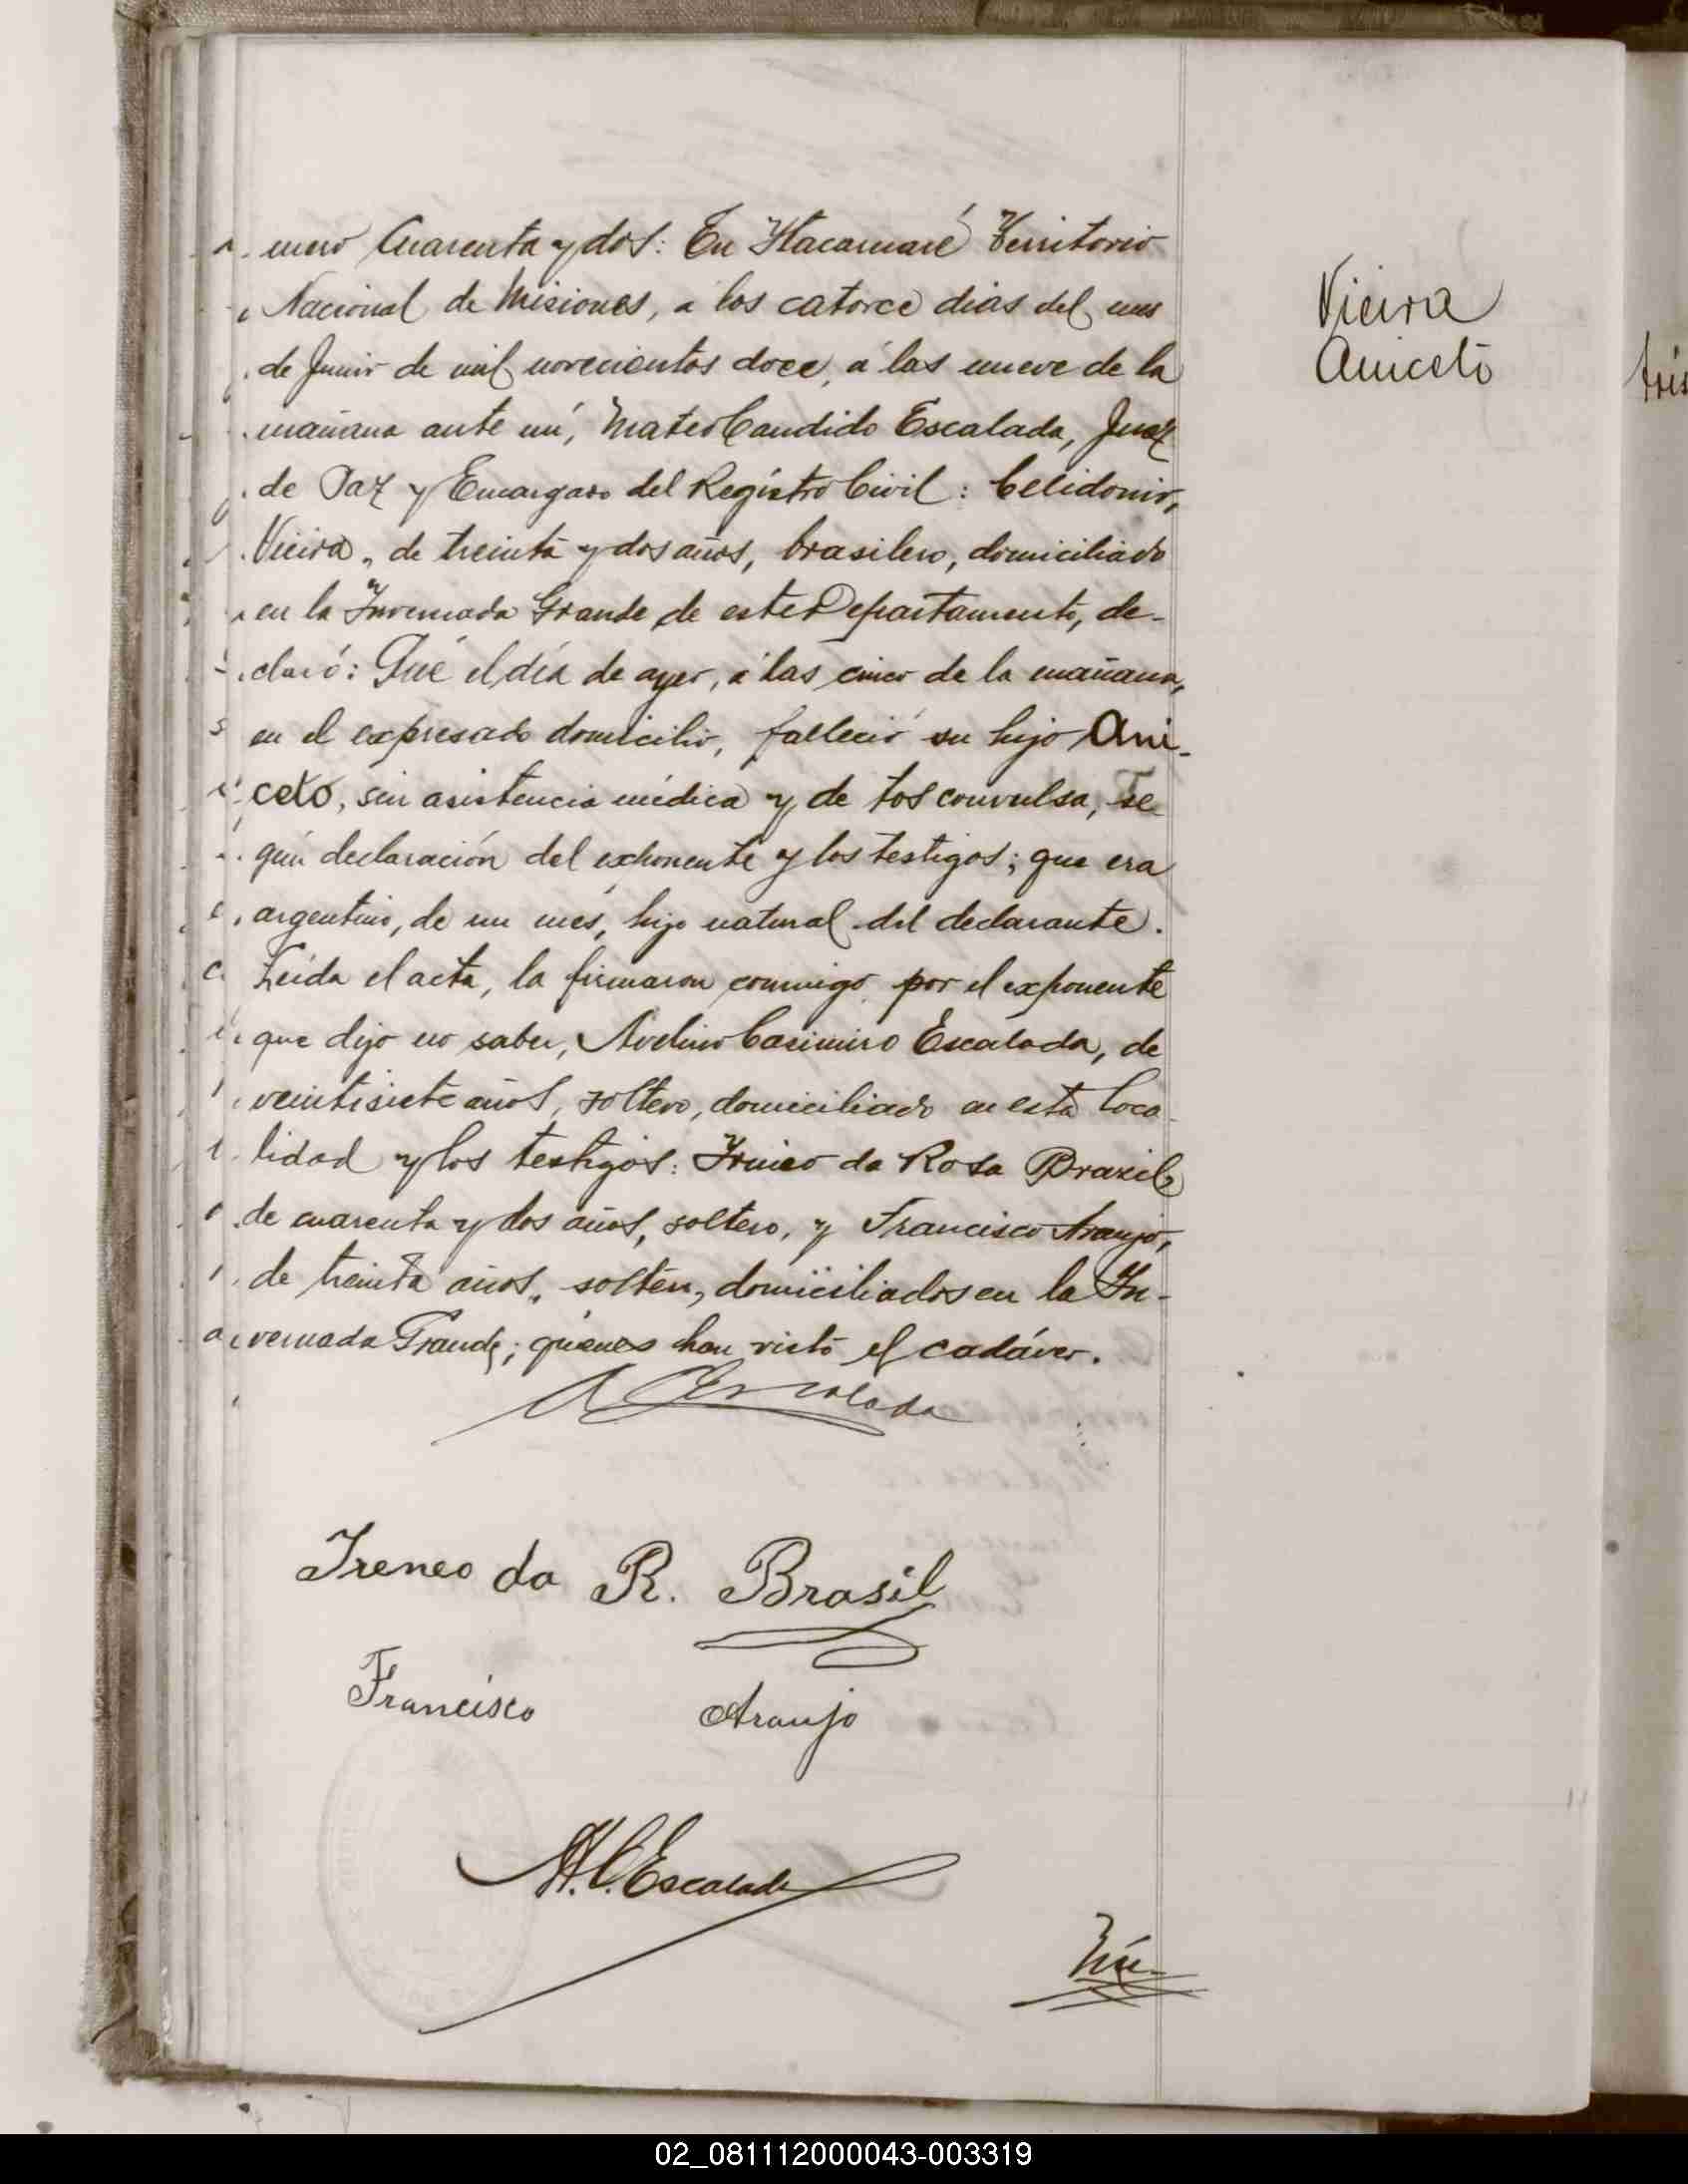 mero Cuarenta y dos: En Itacaruaré Territorio
Nacional de Misiones, a los catorce dias del mes
de Junio de mil novecientos doce, á las nueve de la
mañana ante mí, Mateo Candido Escalada, Juez
de Paz y Encargado del Registro Civil: Celidonio,
Vieira, de treinta y dos años, brasilero, domiciliado
en la Invernada Grande de este Departamento, de-
claró: Que el día de ayer, á las cinco de la mañana,
en el expresado domicilio, falleció su hijo Ani-
ceto, sin asistencia médica y de tos convulsa, se-
gún declaración del exponente y los testigos; que era
argentino, de un més, hijo natural del declarante.
Leída el acta, la firmaron conmigo por el exponente
que dijo no saber, Avelino Casimiro Escalada, de
veintisiete años, soltero, domiciliado en esta loca-
lidad y los testigos: Irineo da Rosa Brazil,
de cuarenta y dos años, soltero, y Francisco Araujo,
de treinta años, soltero, domiciliados en la In-
vernada Grande; quienes han visto el cadáver.
A C Escalada
Ireneo da R. Brasil
Francisco Araujo
M.C. Escalada
Nú-
Vieira
Aniceto
trés
02_081112000043-003319